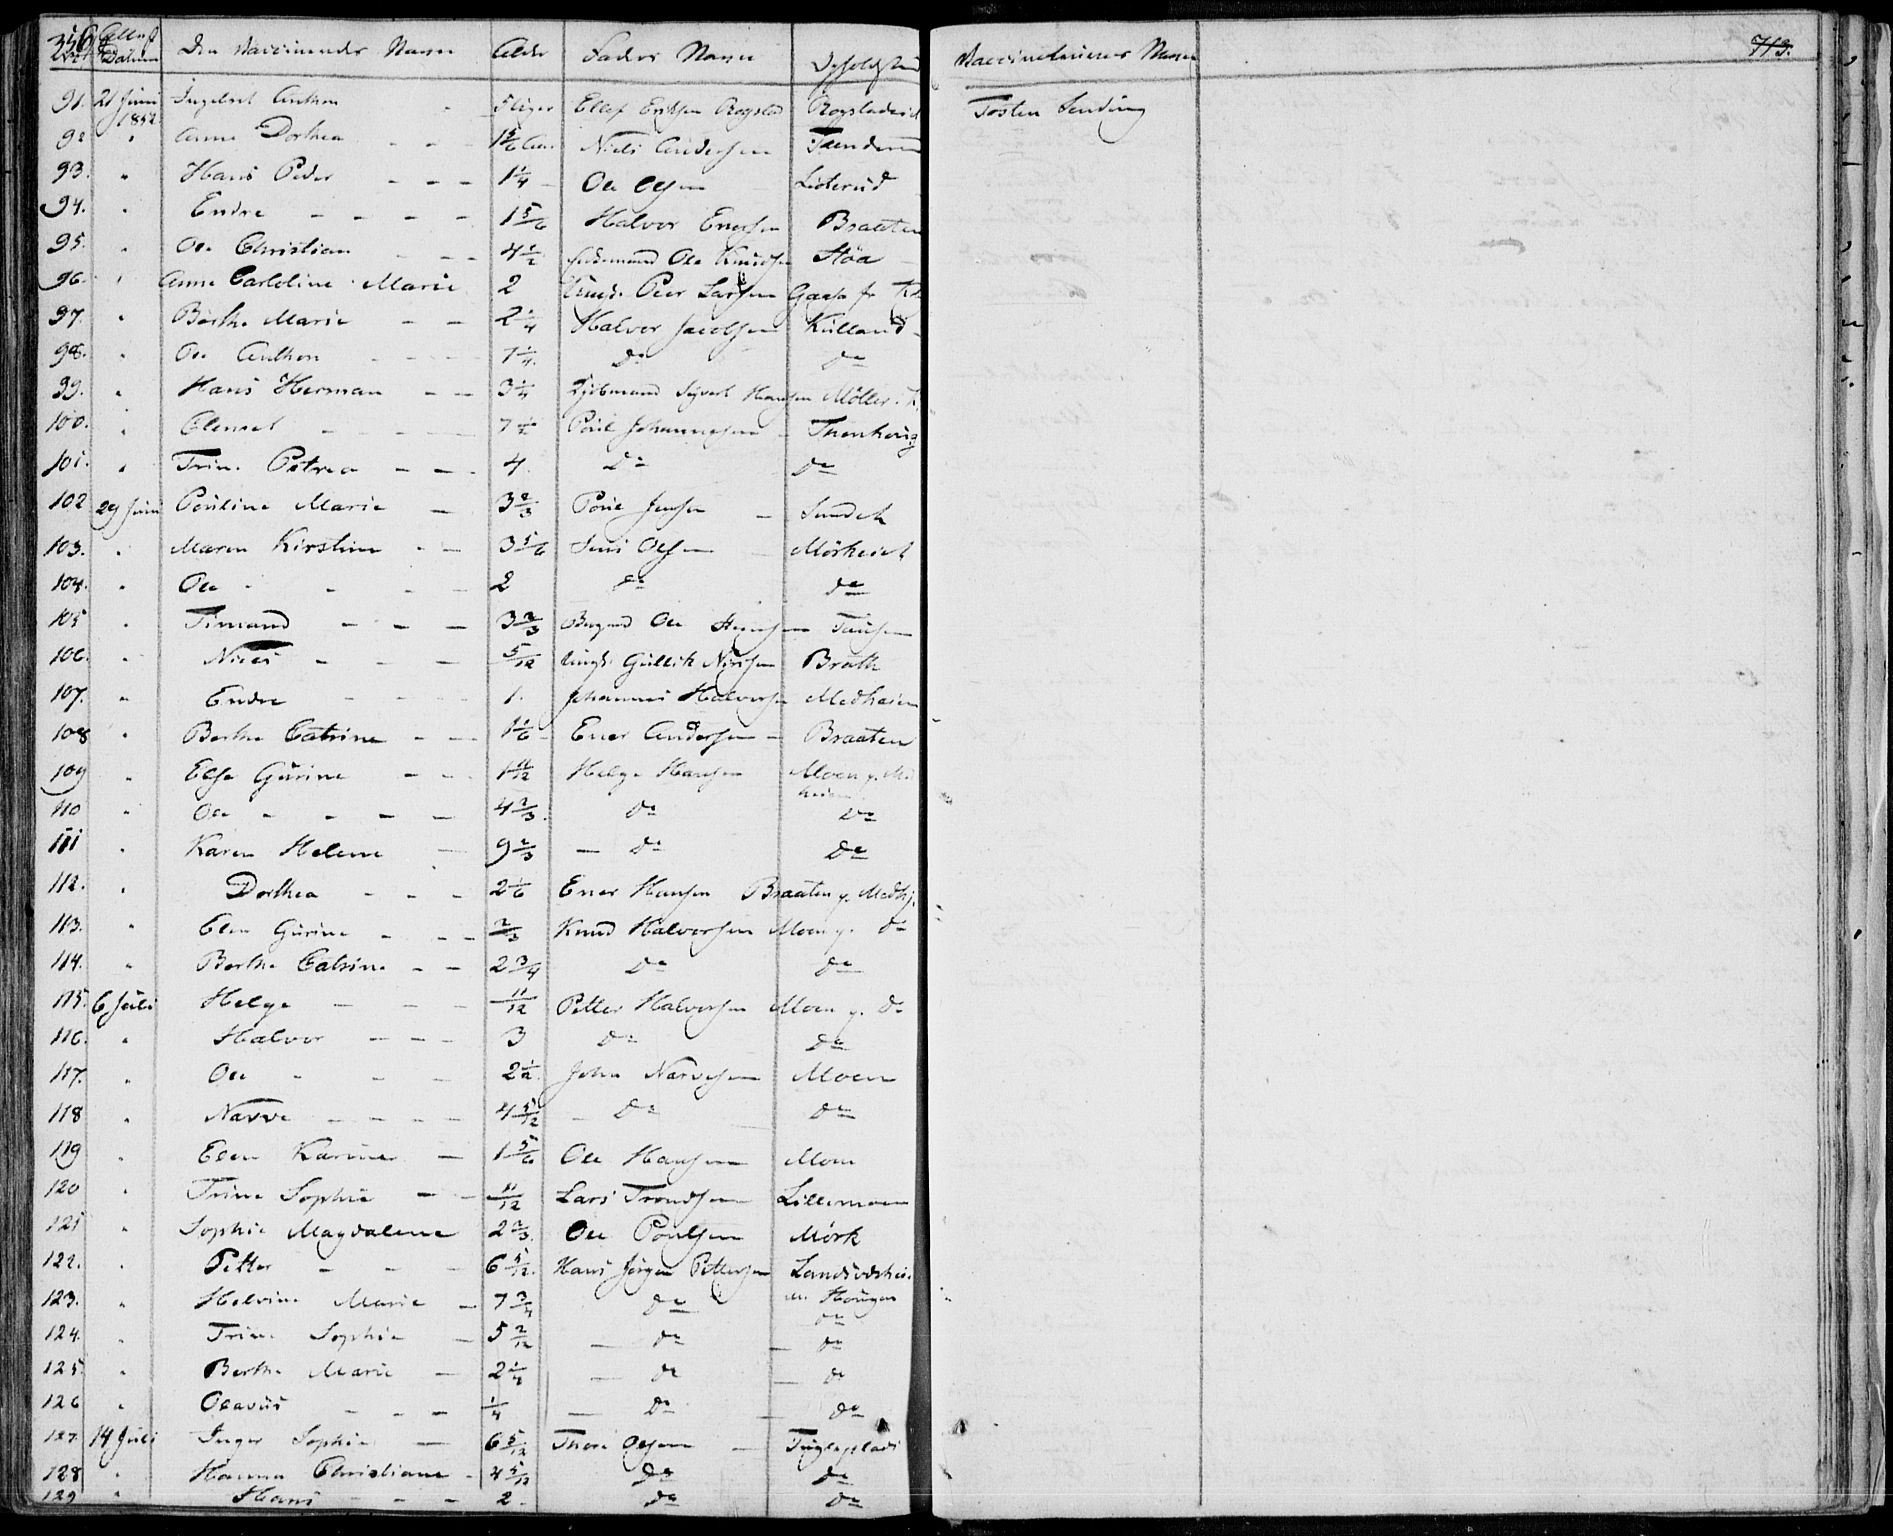 356 Attest Datum Den Vaccineredes Navn Alder Faders Navn Opholdssted Vaccinateurens Navn 713.
91. 21 Juni 1852 Ingebret Anthon 5 Uger Ellef Eriksen Rogstad Rogstadeiet Tosten Lending
92 " Anne Dorthea - - - 1 5/6 Aar Niels Andersen
93. " Hans Peder - - - 1 1/4 - Ole Olsen Lieterud
94. " Endre - - - - 1 5/6 Halvor Enersen Braaten
95. " Ole Christian - - - 4 1/2 Ole Knudsen Støa
96. " Anne Caroline Marie 2 Peer Larsen
97. " Berthe Marie - - 2 1/4 Halvor Jacobsen Kulland
98. " Ole Anthon - - - 7 1/4 Do Do
99. " Hans Herman - - 3 1/4 Kjøbmand Syvert Hansen Møller
100. " Clemet - - - - 7 1/2 Poul Johannesen -
101. " Trine Petrea - - - 4. Do Do
102 29 Juni Pouline Marie - 3 2/3 Poul Jensen - Sundet
103. " Maren Kirstine - - 3 5/6 Jens Olsen Mørkeiet
104. " Ole - - - - 2 Do Do
105 " Timand - - - 3 2/3 Ole
106. " Niels - - - 5/12 Ungk. Gullik Nirisen Bråth
107. " Endre - - - 1. Johannes Halvorsen Medheien
108 " Berthe Catrine - - 1 1/6 - Ener Andersen - Braaten
109 " Else Gurine - - 1 11/12 Helge Hansen Moen p. Medheien
110 " Ole - - - - 4 2/3. Do Do
111 " Karen Helene - 9 2/3 - Do Do
112. " Dorthea - - - 2 1/6 Ener Hansen Braaten p. Medhj.
113. " Elen Gurine - - - 2/3 Knud Halvorsen Moen p. Do
114. " Berthe Catrine - - 2 3/4 Do Do
115. 6 Juli Helge - - - 11/12 Petter Halvorsen Moen p. Do
116. " Halvor - - - 3 Do Do
117. " Ole - - - 2 1/2. John Narvesen Moen
118 " Narve - - - - 4 5/12 - Do Do
119 " Elen Karine - 1 5/6 Ole Hansen Moen
120 " Trine Sophie - - 11/12 Lars Trondsen Lillemoen
121 " Sophie Magdalene 2 2/3. Ole Poulsen Mørk
122. " Petter - - - 6 5/12. Hans Jørgen Pettersen
123. " Helvine Marie - 7 3/4 Do Do
124. " Trine Sophie - 5 2/12 - Do - Do
125. " Berthe Marie - 2 1/4 - Do - Do
126 " Olavus - - - 1/4 - Do - Do
127. 14 Juli Inger Sophie - 6 5/12 Thore Olsen - Tugleplads
128 " Hanna Christiane - 4 5/12 Do Do
129 " Hans - - - 2 - Do Do